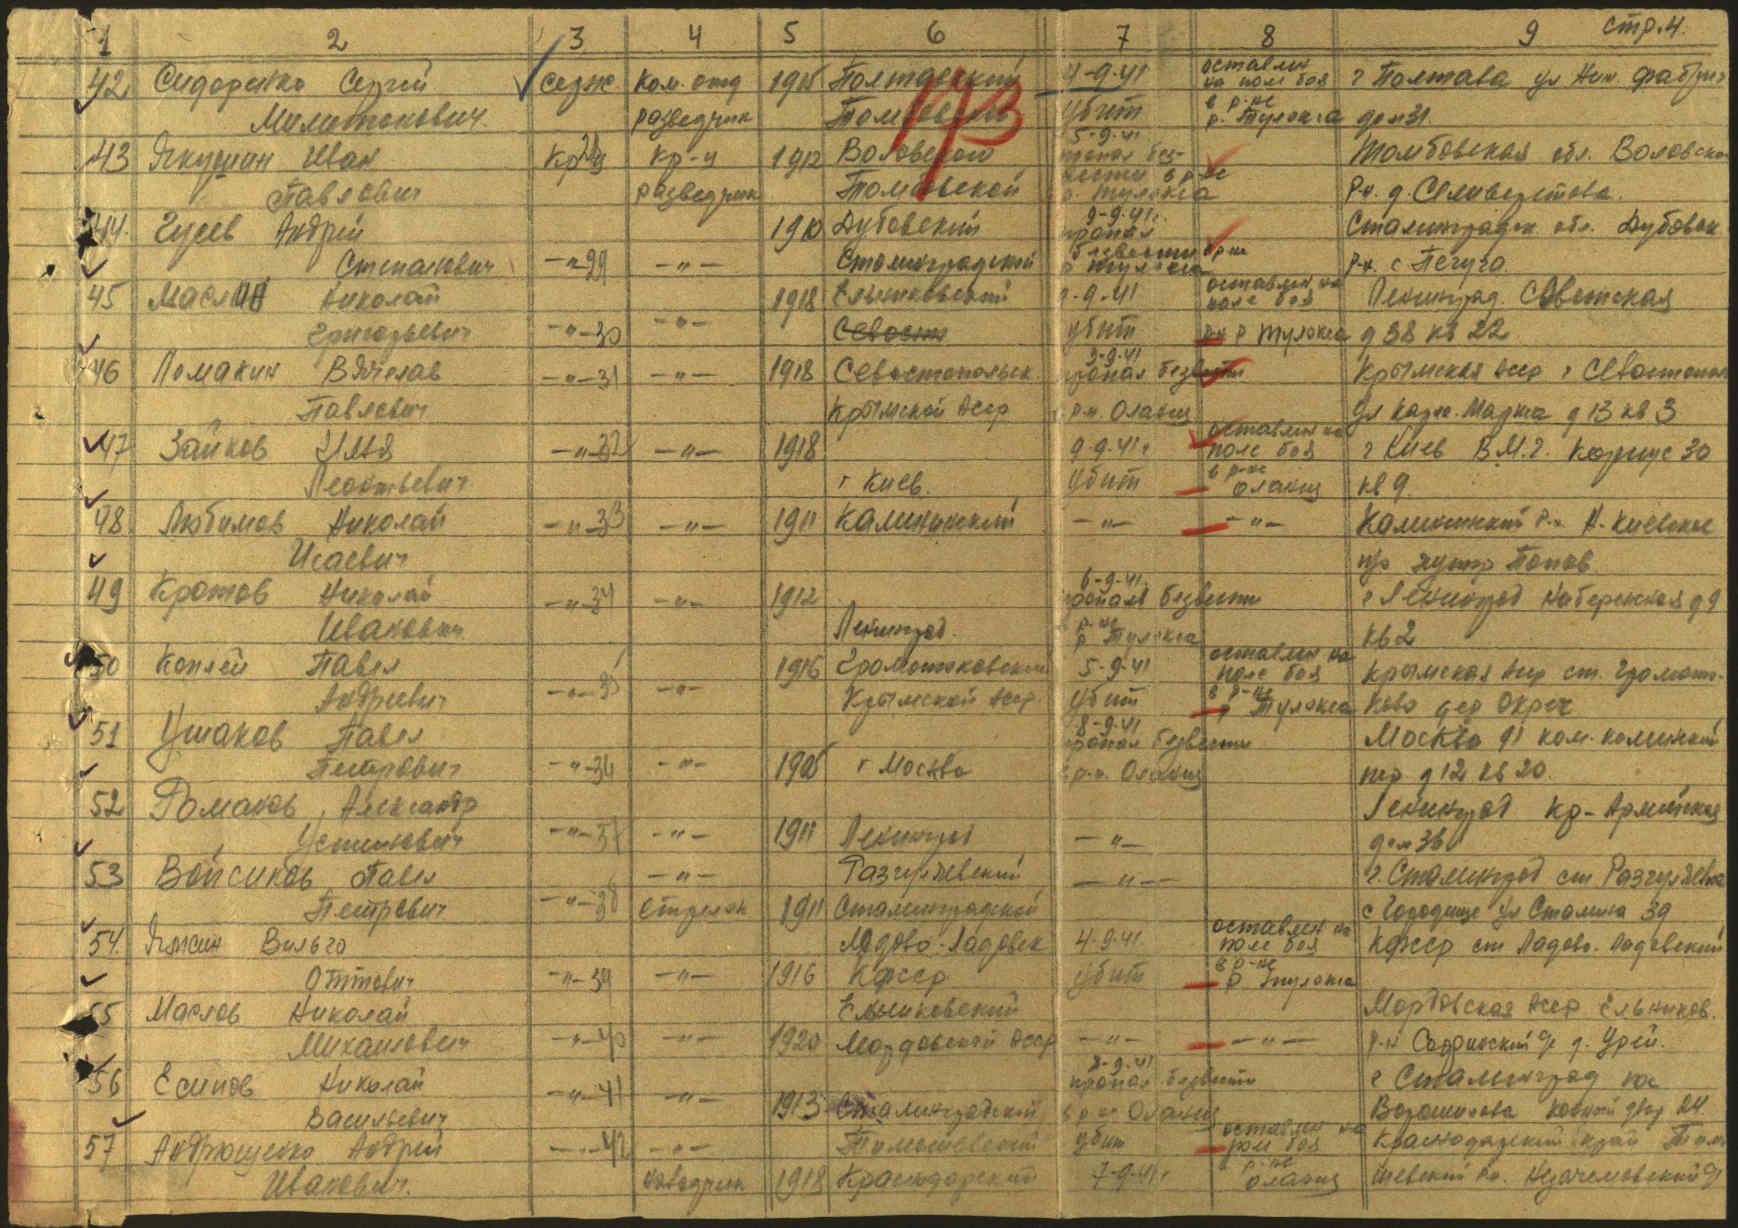 стр. 4.
1 2 3 4 5 6 7 8 9
42 Сидоренко Сергей серж. Ком. отд 1915 Полтавский 4-9-41 оставлен на поле боя г Полтава ул
Милитонович разведчик Тамбовской убит в р-не р. Тулокса дом 31.
173
43 Якушин Иван Кр-ц Кр-ц 1912 Воловского 5-9-41 пропал без- Томбовская обл. Воловско
Павлович разведчик Томбовской вести в р-не р. Тулокса р-н. д. Селиверстова.
44. Гусев Андрей 1910 Дубовский 9-9-41г. пропал Сталинградск обл. Дубовск
Степанович -"-29 -"- Сталинградской безвести в р-не р Тулокса р-н. с. Печуга.
45 Маслин Николай 1918 Ельниковский 9-9-41 оставлен на поле боя Ленинград. Советская
Григорьевич -"-30 -"- убит р-н р Тулокса д 38 кв 22
46 Ломакин Вячелав -"-31 -"- 1918 Севастопольск. 9-9-41 пропал безвести Крымская Асср г Севастопол
Павлович Крымской Асср р-н. Олонец ул Карла. Маркса д 13 кв 3
47 Зайков Илья -"-32 -"- 1918 9-9-41г оставлен на поле боя г Киев В.М.г. Корпус 30
Леонтьевич г Киев. убит в р-не Олонец кв 9.
48. Любимов Николай -"-33 -"- 1911 Калининский -"- -"- Калининский р-н Н-Киевское
Исаевич п/о хутор Попов.
49 Кротов Николай -"-34 -"- 1912 6-9-41. пропал безвести г Ленинград Набережная д 9
Иванович Ленинград. р-не р Тулокса кв 2
50 Павел 1916 5-9-41 оставлен на поле боя Крымская Асср ст.
Андреевич -"-35 -"- Крымской Асср. убит в р-не р Тулокса ково дер
51 Ушаков Павел 8-9-41 пропал безвести Москва
Петрович -"-36 -"- 1905 г Москва р-н. Олонец пер д 12 кв 20.
52 Романов Александр Ленинград Кр-Армейская
Устинович -"-37 -"- 1911 Ленинград -"- дом 36
53 Войсиков Павел -"- Разгуляевский -"- г. Сталинград ст. Разгуляевка
Петрович -"-38 Стрелок 1911 Сталинградской с Городище ул Сталина 39
54. Вильго Лодово-Ладовск 4-9-41 оставлен на поле боя КФсср ст Ладово-Ладовский
Оттович -"-39 -"- 1916 КФсср убит в р-не р Тулокса
55 Маслов Николай Ельниковский Мордовская Асср Ельников.
Михаилович -"-40 -"- 1920 Мордовской Асср -"- -"- р-н д. Урей.
56 Есипов Николай -"-41 -"- 8-9-41 пропал безвести г Сталинград
Васильевич 1913 Сталинградской в р-не Олонец Ворошилова
57 Андрющенко Андрей -"-42 -"- Тимошевский убит оставлен на поле боя Краснодарский край Тим
Иванович. наводчик 1918 Краснодарский 7-9-41г в р-не Олонец шевский р-н.